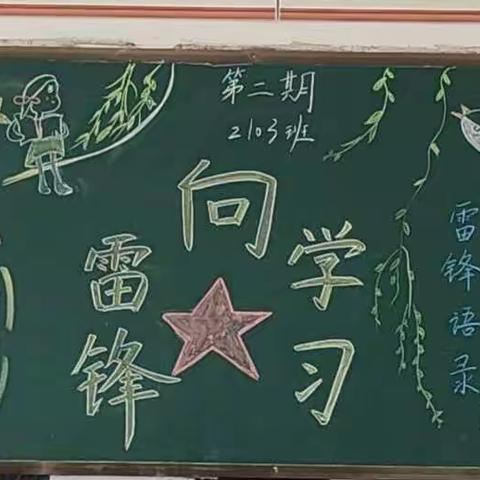 第二期
2103班
向
雷锋
学习
雷锋语录